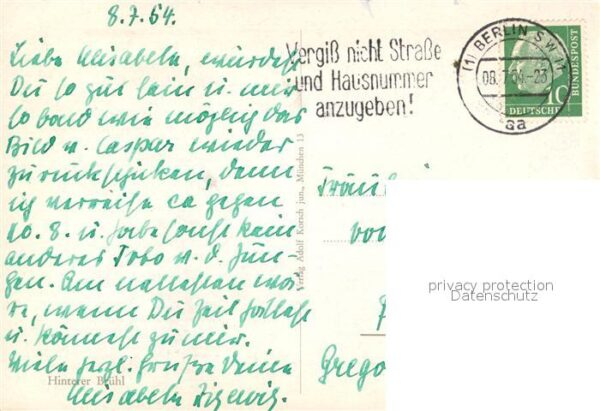 8.7.54.
Liebe Elisabeth, würdest
Du so gut sein u. mir
so bald wie möglich das
Bild v. Caspar wieder
zurückschicken, denn
ich verreise ca gegen
10. 8. u. habe sonst kein
anderes Foto v. d. Jun-
gen. Am nettesten wä-
re, wenn Du Zeit hättest
u. kämest zu mir.
Viele herzl. Grüße Deine
Elisabeth
Hinterer Brühl
Verlag Adolf Korsch jun., München 13
Vergiß nicht Straße
und Hausnummer
anzugeben!
(1) BERLIN SW 11
08. 7. 54.-23
aa
10
DEUTSCHE
BUNDESPOST
Fräulein
von
Grego
privacy protection
Datenschutz